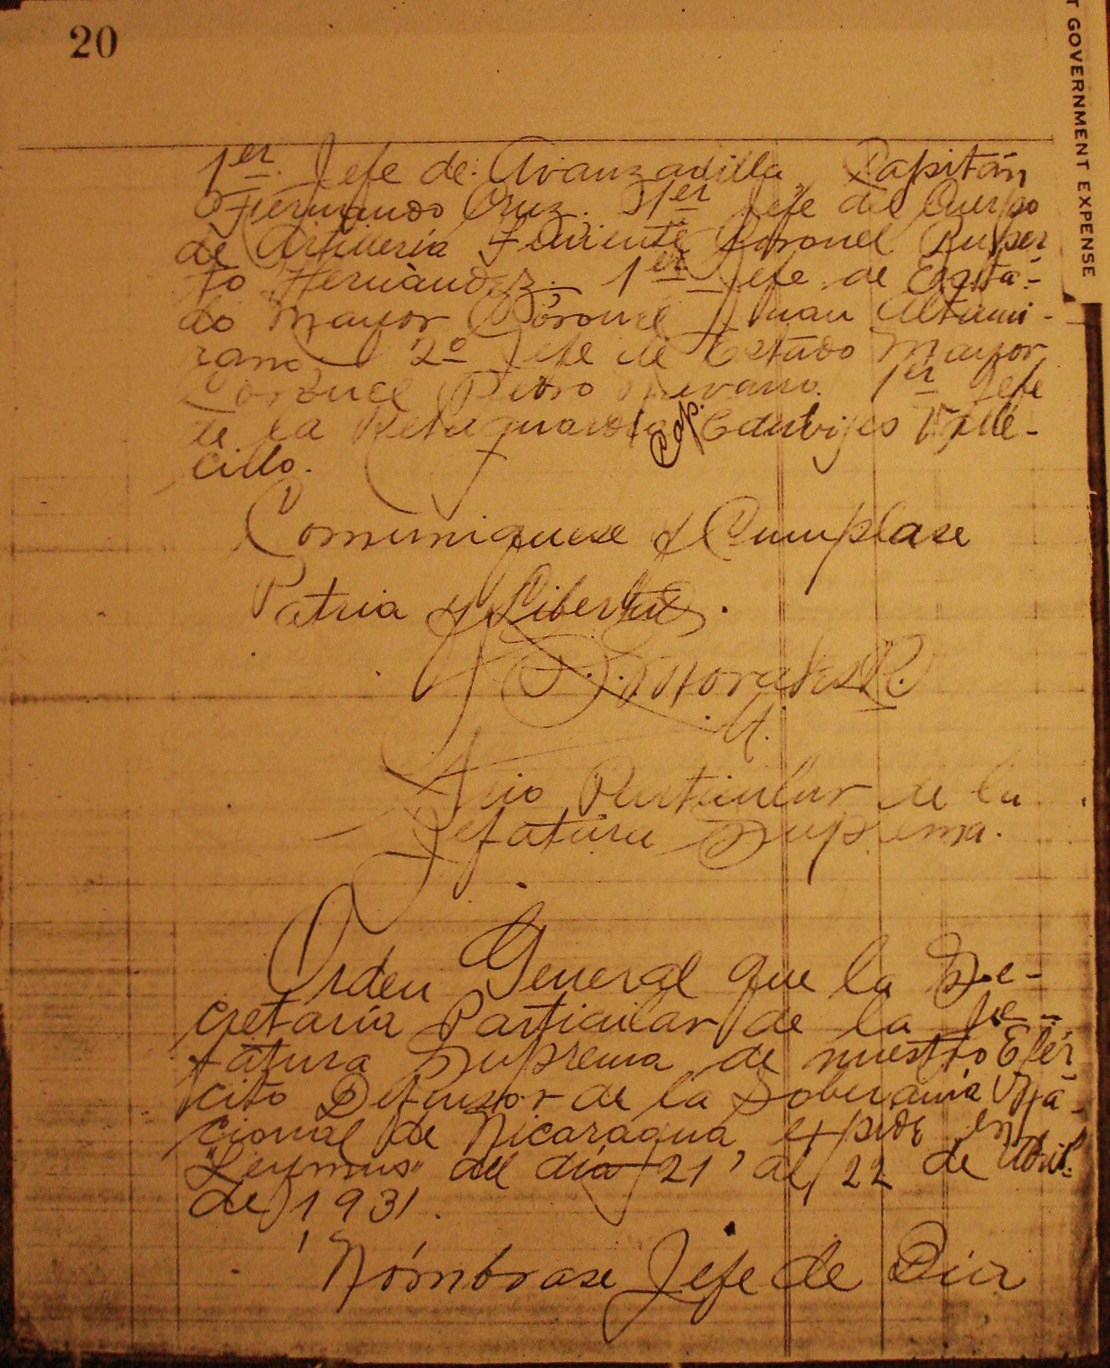 20
T GOVERNMENT EXPENSE
1er. Jefe de Avanzadilla, Capitán
Fernando Cruz. 1er Jefe del Cuerpo
de Artillería Teniente Coronel Ruper
to Hernández. 1er Jefe de Esta-
do Mayor Coronel Juan Altami-
rano 2º Jefe de Estado Mayor
Coronel Pedro 1er Jefe
de la Retaguardia Cap. Edubijes Valle-
cillo.
Comuniquese y Cumplase
Patria y Libertad.
J. Morales R.
Srio Particular de la
Jefatura Suprema.
Orden General que la Se-
cretaría Particular de la Je-
fatura Suprema de nuestro Ejér
cito Defensor de la Soberanía Na-
cional de Nicaragua expide en
del día 21 al 22 de Abril.
de 1931.
Nómbrase Jefe de Día